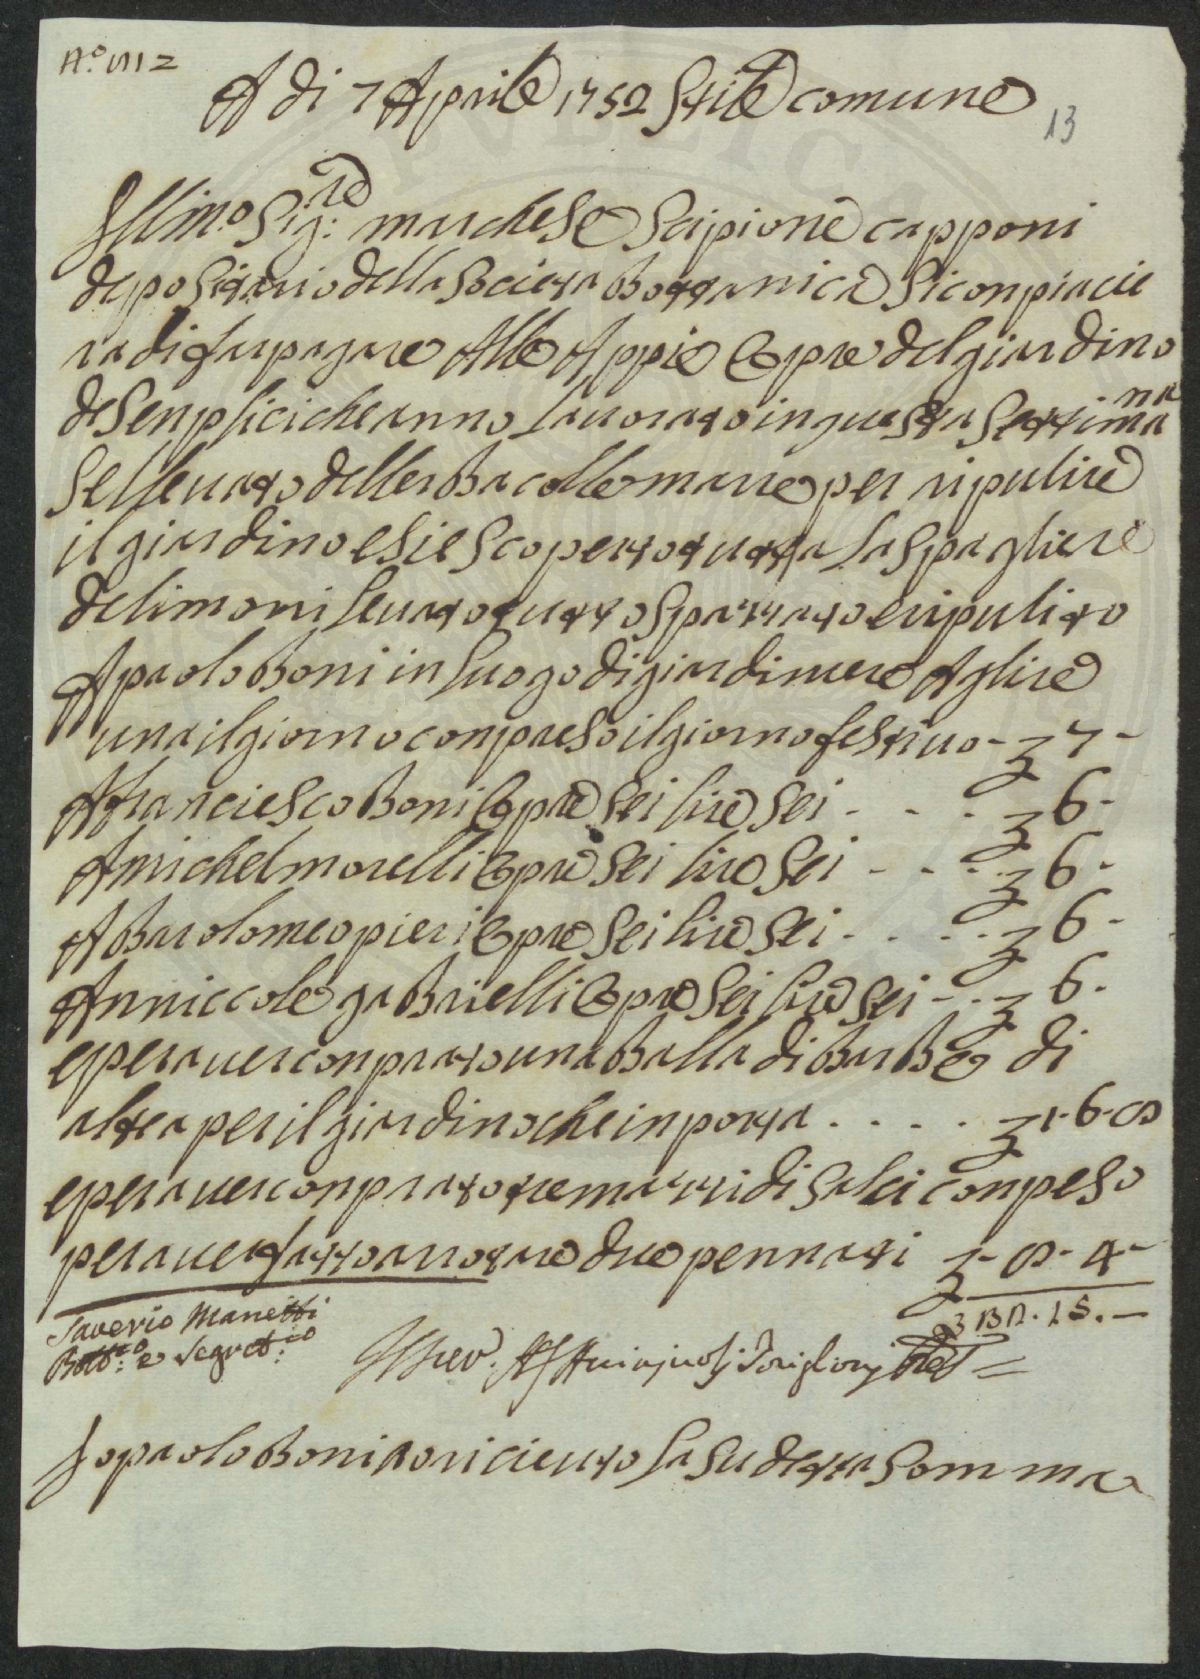 A di 7 Aprile 1752 Stile comune
13
Illmo Sig:re marchese Scipione capponi
depositario della Societa Bottanica Si conpiacie
ra di far pagare Alle Appie Opre del giardino
de Senplici che anno Lauorato in questa Settima
na
Se lleuato dellerba colle marre per ripulire
il giardino e si e scoperto tutta La Spagliere
de limoni leuato tutto Spazzato e ripulito
A paolo Boni in luogo di giardiniere A lire
una il giorno conpreso il giorno festiuo - £ 7 -
A franciesco Boni Opre Sei lire Sei - - - £ 6 -
A michel morelli Opre Sei lire Sei - - - £ 6 -
A Bartolomeo pieri Opre Sei lire Sei - - - - £ 6 -
A nniccole gaBrielli Opre Sei lire Sei - - £ 6 -
e per auer conprato una Balla di BarBe di
altea per il giardino che inporta . . . . . £ 1 - 6 - 8
e per auer conprato tre mazzi di Salci con peso
per auer fatto arrotare due pennati £ - 8 - 4 -
£ 32. 15. -
Saverio Manetti
Bottco e Segretrio
Io paolo Boni o riceuto la Su detta Somma